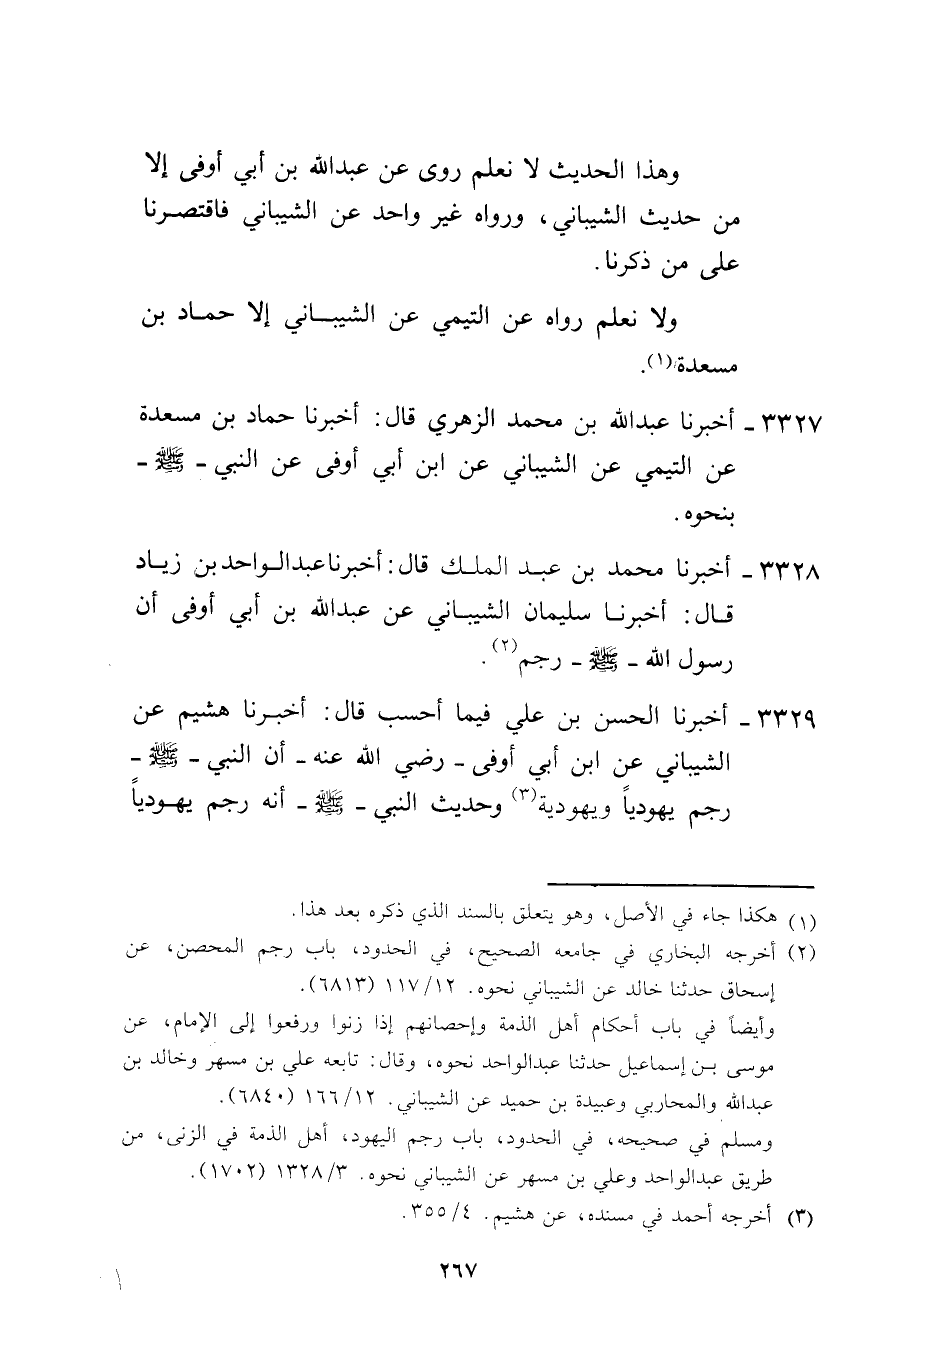 وهذا الحديث لا نعلم روى عن عبدالله بن أبي أوفى إلا
من حديث الشيباني، ورواه غير واحد عن الشيباني فاقتصرنا
على من ذكرنا.
ولا نعلم رواه عن التيمي عن الشيباني إلا حماد بن
مسعدة(١).
٣٣٢٧ ـ أخبرنا عبدالله بن محمد الزهري قال: أخبرنا حماد بن مسعدة
عن التيمي عن الشيباني عن ابن أبي أوفى عن النبي ـ ﷺ ـ
بنحوه.
٣٣٢٨ ـ أخبرنا محمد بن عبد الملك قال: أخبرنا عبدالواحد بن زياد
قال: أخبرنا سليمان الشيباني عن عبدالله بن أبي أوفى أن
رسول الله ـ ﷺ ـ رجم(٢).
٣٣٢٩ ـ أخبرنا الحسن بن علي فيما أحسب قال: أخبرنا هشيم عن
الشيباني عن ابن أبي أوفى ـ رضي الله عنه ـ أن النبي ـ ﷺ ـ
رجم يهودياً ويهودية(٣) وحديث النبي ـ ﷺ ـ أنه رجم يهودياً
(١) هكذا جاء في الأصل، وهو يتعلق بالسند الذي ذكره بعد هذا.
(٢) أخرجه البخاري في جامعه الصحيح، في الحدود، باب رجم المحصن، عن
إسحاق حدثنا خالد عن الشيباني نحوه. ١١٧/١٢ (٦٨١٣).
وأيضاً في باب أحكام أهل الذمة وإحصانهم إذا زنوا ورفعوا إلى الإمام، عن
موسى بن إسماعيل حدثنا عبدالواحد نحوه، وقال: تابعه علي بن مسهر وخالد بن
عبدالله والمحاربي وعبيدة بن حميد عن الشيباني. ١٦٦/١٢ (٦٨٤٠).
ومسلم في صحيحه، في الحدود، باب رجم اليهود، أهل الذمة في الزنى، من
طريق عبدالواحد وعلي بن مسهر عن الشيباني نحوه. ١٣٢٨/٣ (١٧٠٢).
(٣) أخرجه أحمد في مسنده، عن هشيم. ٣٥٥/٤.
٢٦٧